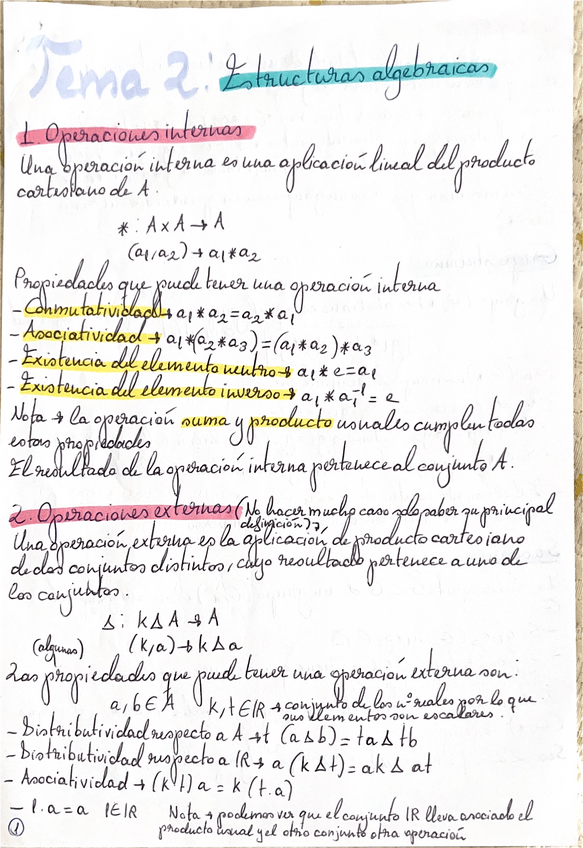 Tema 2: Estructuras algebraicas
1. Operaciones internas
Una operación interna es una aplicación lineal del producto
cartesiano de A.
* : A x A → A
(a₁,a₂) → a₁*a₂
Propiedades que puede tener una operación interna
- Conmutatividad → a₁*a₂=a₂*a₁
- Asociatividad → a₁*(a₂*a₃)=(a₁*a₂)*a₃
- Existencia del elemento neutro → a₁*e=a₁
- Existencia del elemento inverso → a₁*a₁⁻¹=e
Nota → la operación suma y producto usuales cumplen todas
estas propiedades
El resultado de la operación interna pertenece al conjunto A.
2. Operaciones externas (No hacer mucho caso solo saber su principal
definición)
Una operación externa es la aplicación de producto cartesiano
de dos conjuntos distintos, cuyo resultado pertenece a uno de
los conjuntos.
Δ : k Δ A → A
(algunas) (k,a) → k Δ a
Las propiedades que puede tener una operación externa son:
a,b ∈ A k,t ∈ IR → conjunto de los nº reales por lo que
sus elementos son escalares.
- Distributividad respecto a A → t (a Δ b) = ta Δ tb
- Distributividad respecto a IR → a (k Δ t) = ak Δ at
- Asociatividad → (k·t) a = k (t.a)
- 1.a=a 1∈IR Nota → podemos ver que el conjunto IR lleva asociado el
① producto usual y el otro conjunto otra operación